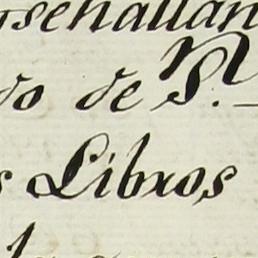 sehallan
do de S.
s Libros